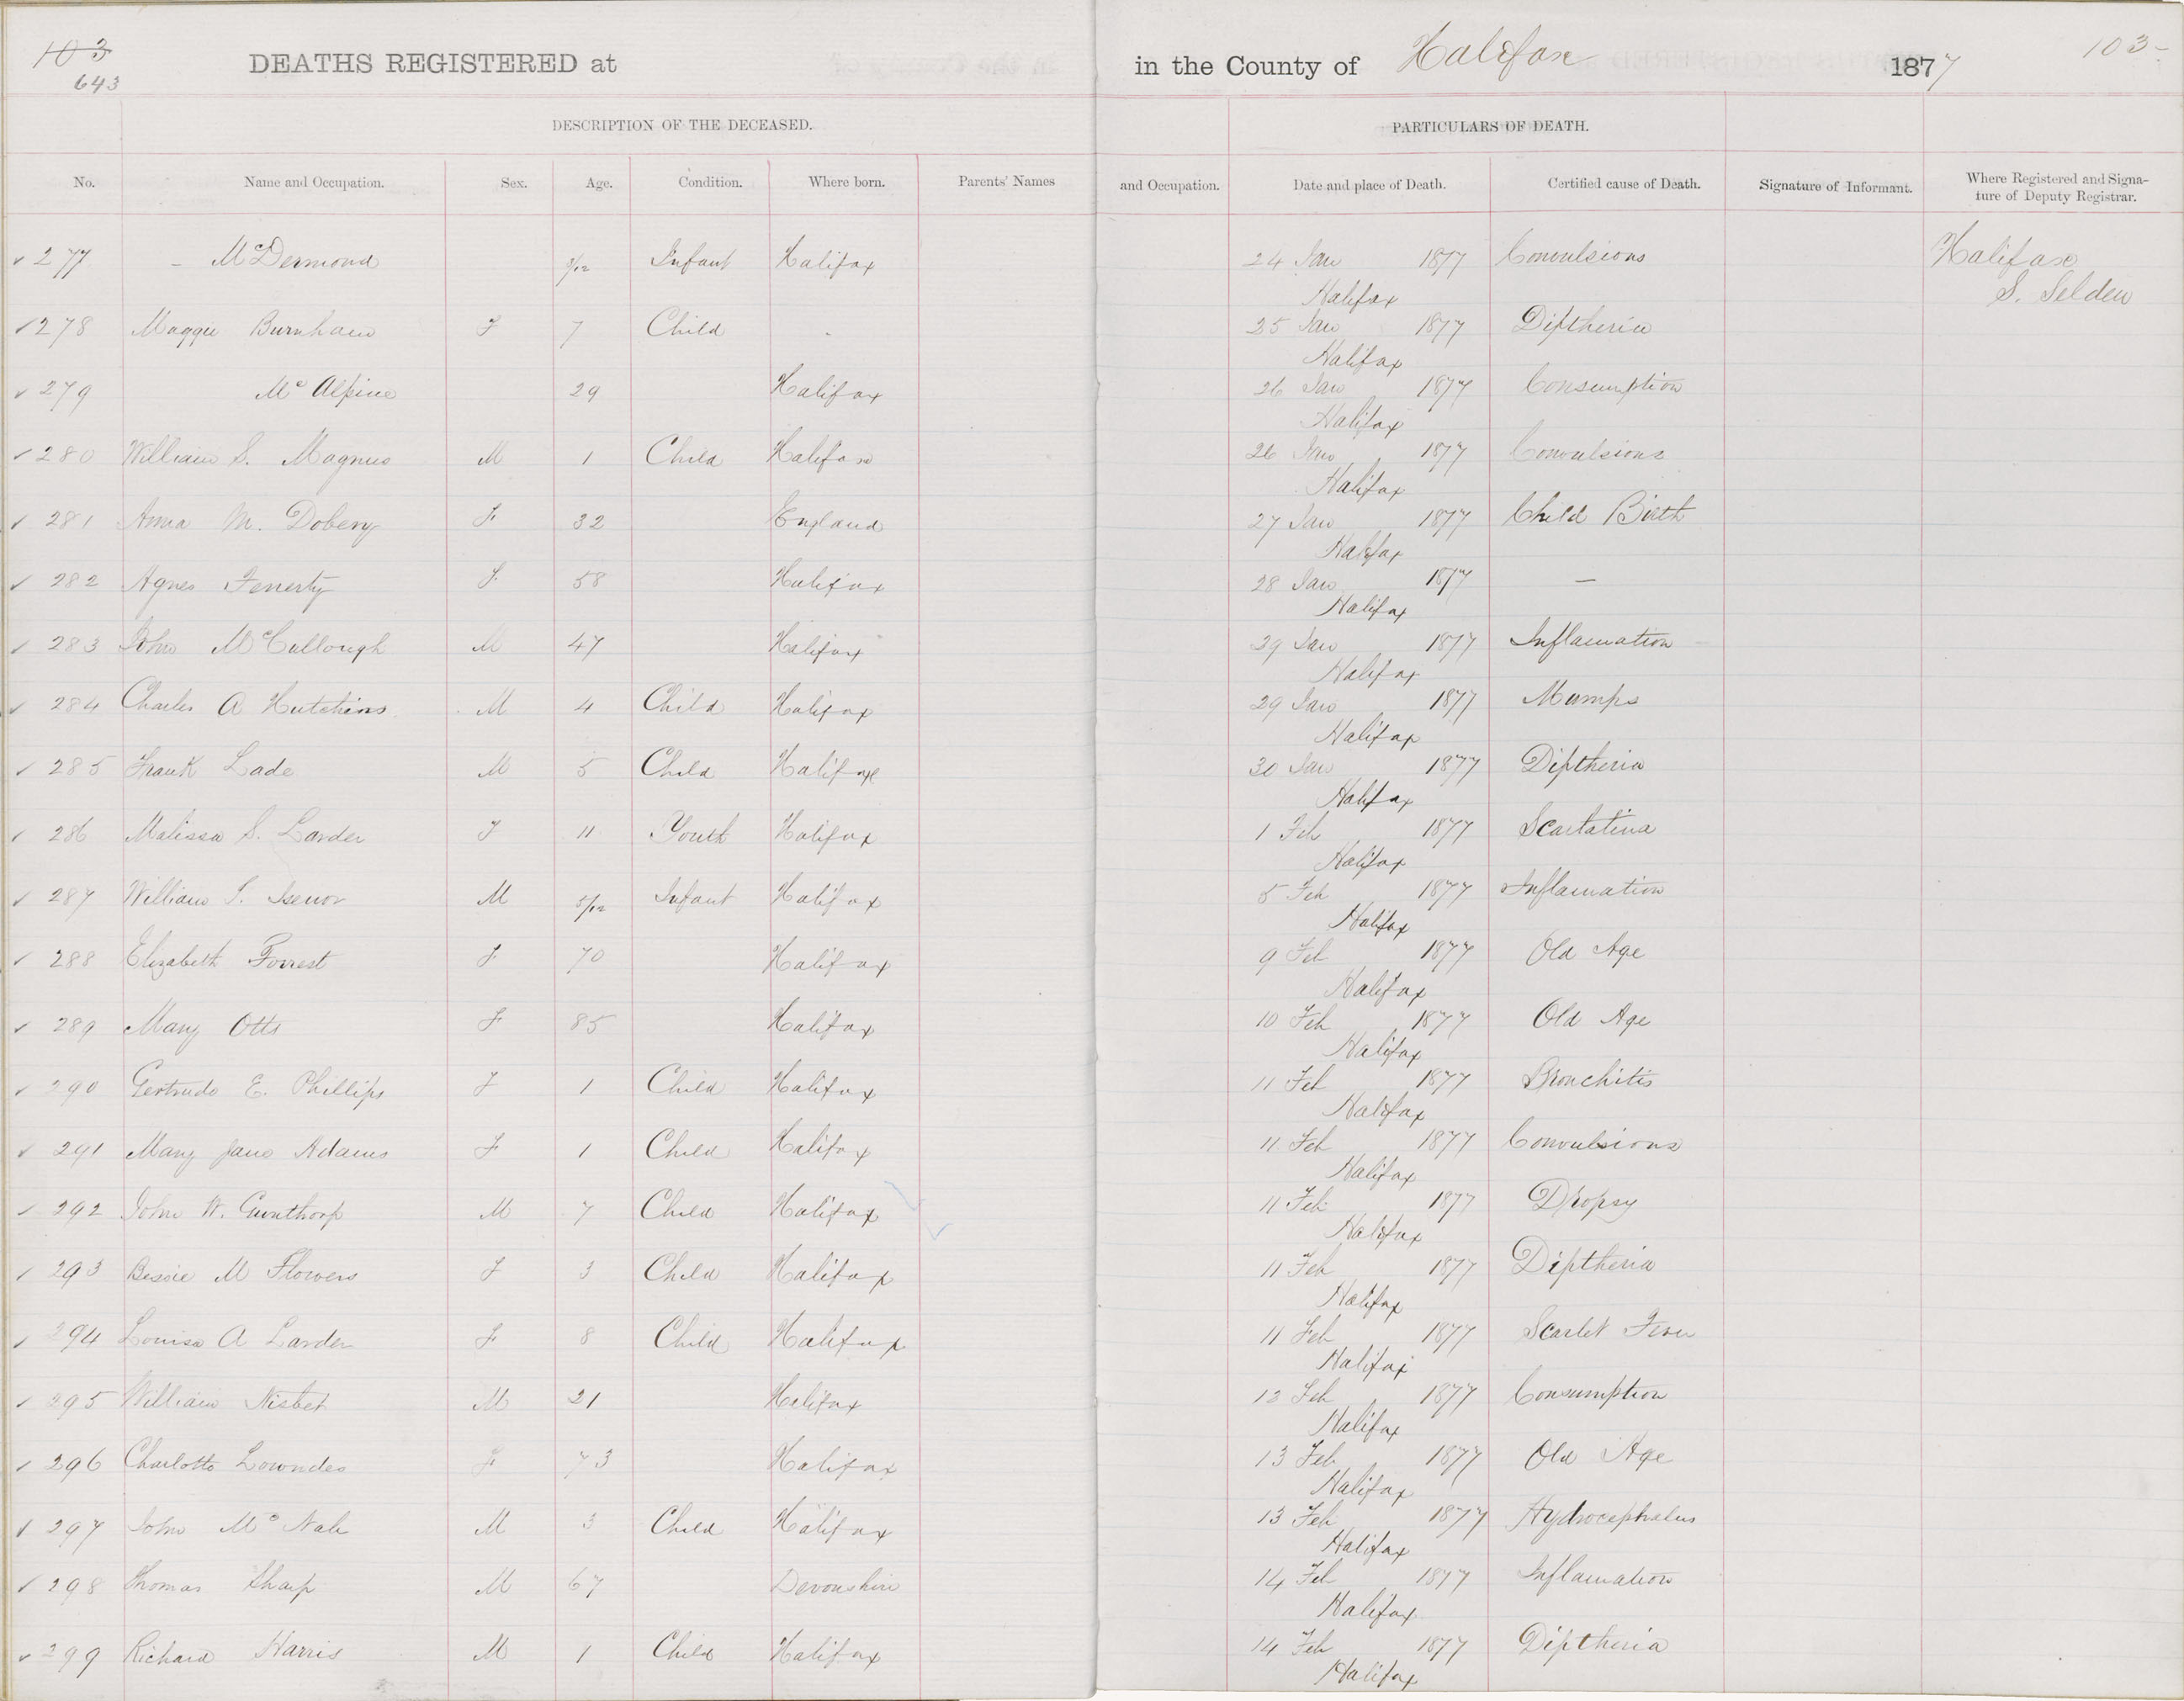 103
643
DEATHS REGISTERED at in the County of Halifax 1877 103-
DESCRIPTION OF THE DECEASED. PARTICULARS OF DEATH.
No. Name and Occupation. Sex. Age. Condition. Where born. Parents' Names and Occupation. Date and place of Death. Certified cause of Death. Signature of Informant. Where Registered and Signa-
ture of Deputy Registrar.
277 - McDermond 3/12 Infant Halifax 24 Jan 1877 Convulsions Halifax
Halifax S. Selden
278 Maggie Burnham F 7 Child - 25 Jan 1877 Diptheria
Halifax
279 Mc Alpine 29 Halifax 26 Jan 1877 Consumption
Halifax
280 William S. Magnus M 1 Child Halifax 26 Jan 1877 Convulsions
Halifax
281 Anna M. Dobery F 32 England 27 Jan 1877 Child Birth
Halifax
282 Agnes Fenerty F 58 Halifax 28 Jan 1877 —
Halifax
283 John McCullough M 47 Halifax 29 Jan 1877 Inflamation
Halifax
284 Charles A Hutchins M 4 Child Halifax 29 Jan 1877 Mumps
Halifax
285 Frank Lade M 5 Child Halifax 30 Jan 1877 Diptheria
Halifax
286 Malissa S. Larder F 11 Youth Halifax 1 Feb 1877 Scarlatina
Halifax
287 William S. Isenor M 5/12 Infant Halifax 5 Feb 1877 Inflamation
Halifax
288 Elizabeth Forrest F 70 Halifax 9 Feb 1877 Old Age
Halifax
289 Mary Otts F 85 Halifax 10 Feb 1877 Old Age
Halifax
290 Gertrude E. Phillips F 1 Child Halifax 11 Feb 1877 Bronchitis
Halifax
291 Mary Jane Adams F 1 Child Halifax 11 Feb 1877 Convulsions
Halifax
292 John W. Gunthorp M 7 Child Halifax 11 Feb 1877 Dropsy
Halifax
293 Bessie M Flowers F 3 Child Halifax 11 Feb 1877 Diptheria
Halifax
294 Louisa A Larder F 8 Child Halifax 11 Feb 1877 Scarlet Fever
Halifax
295 William Nisbet M 21 Halifax Feb 1877 Consumption
Halifax
296 Charlotte Lowndes F 73 Halifax 13 Feb 1877 Old Age
Halifax
297 John Mc Nab M 3 Child Halifax 13 Feb 1877 Hydrocephalus
Halifax
298 Thomas Sharp M 67 Devonshire 14 Feb 1877 Inflamation
Halifax
299 Richard Harris M 1 Child Halifax 14 Feb 1877 Diptheria
Halifax